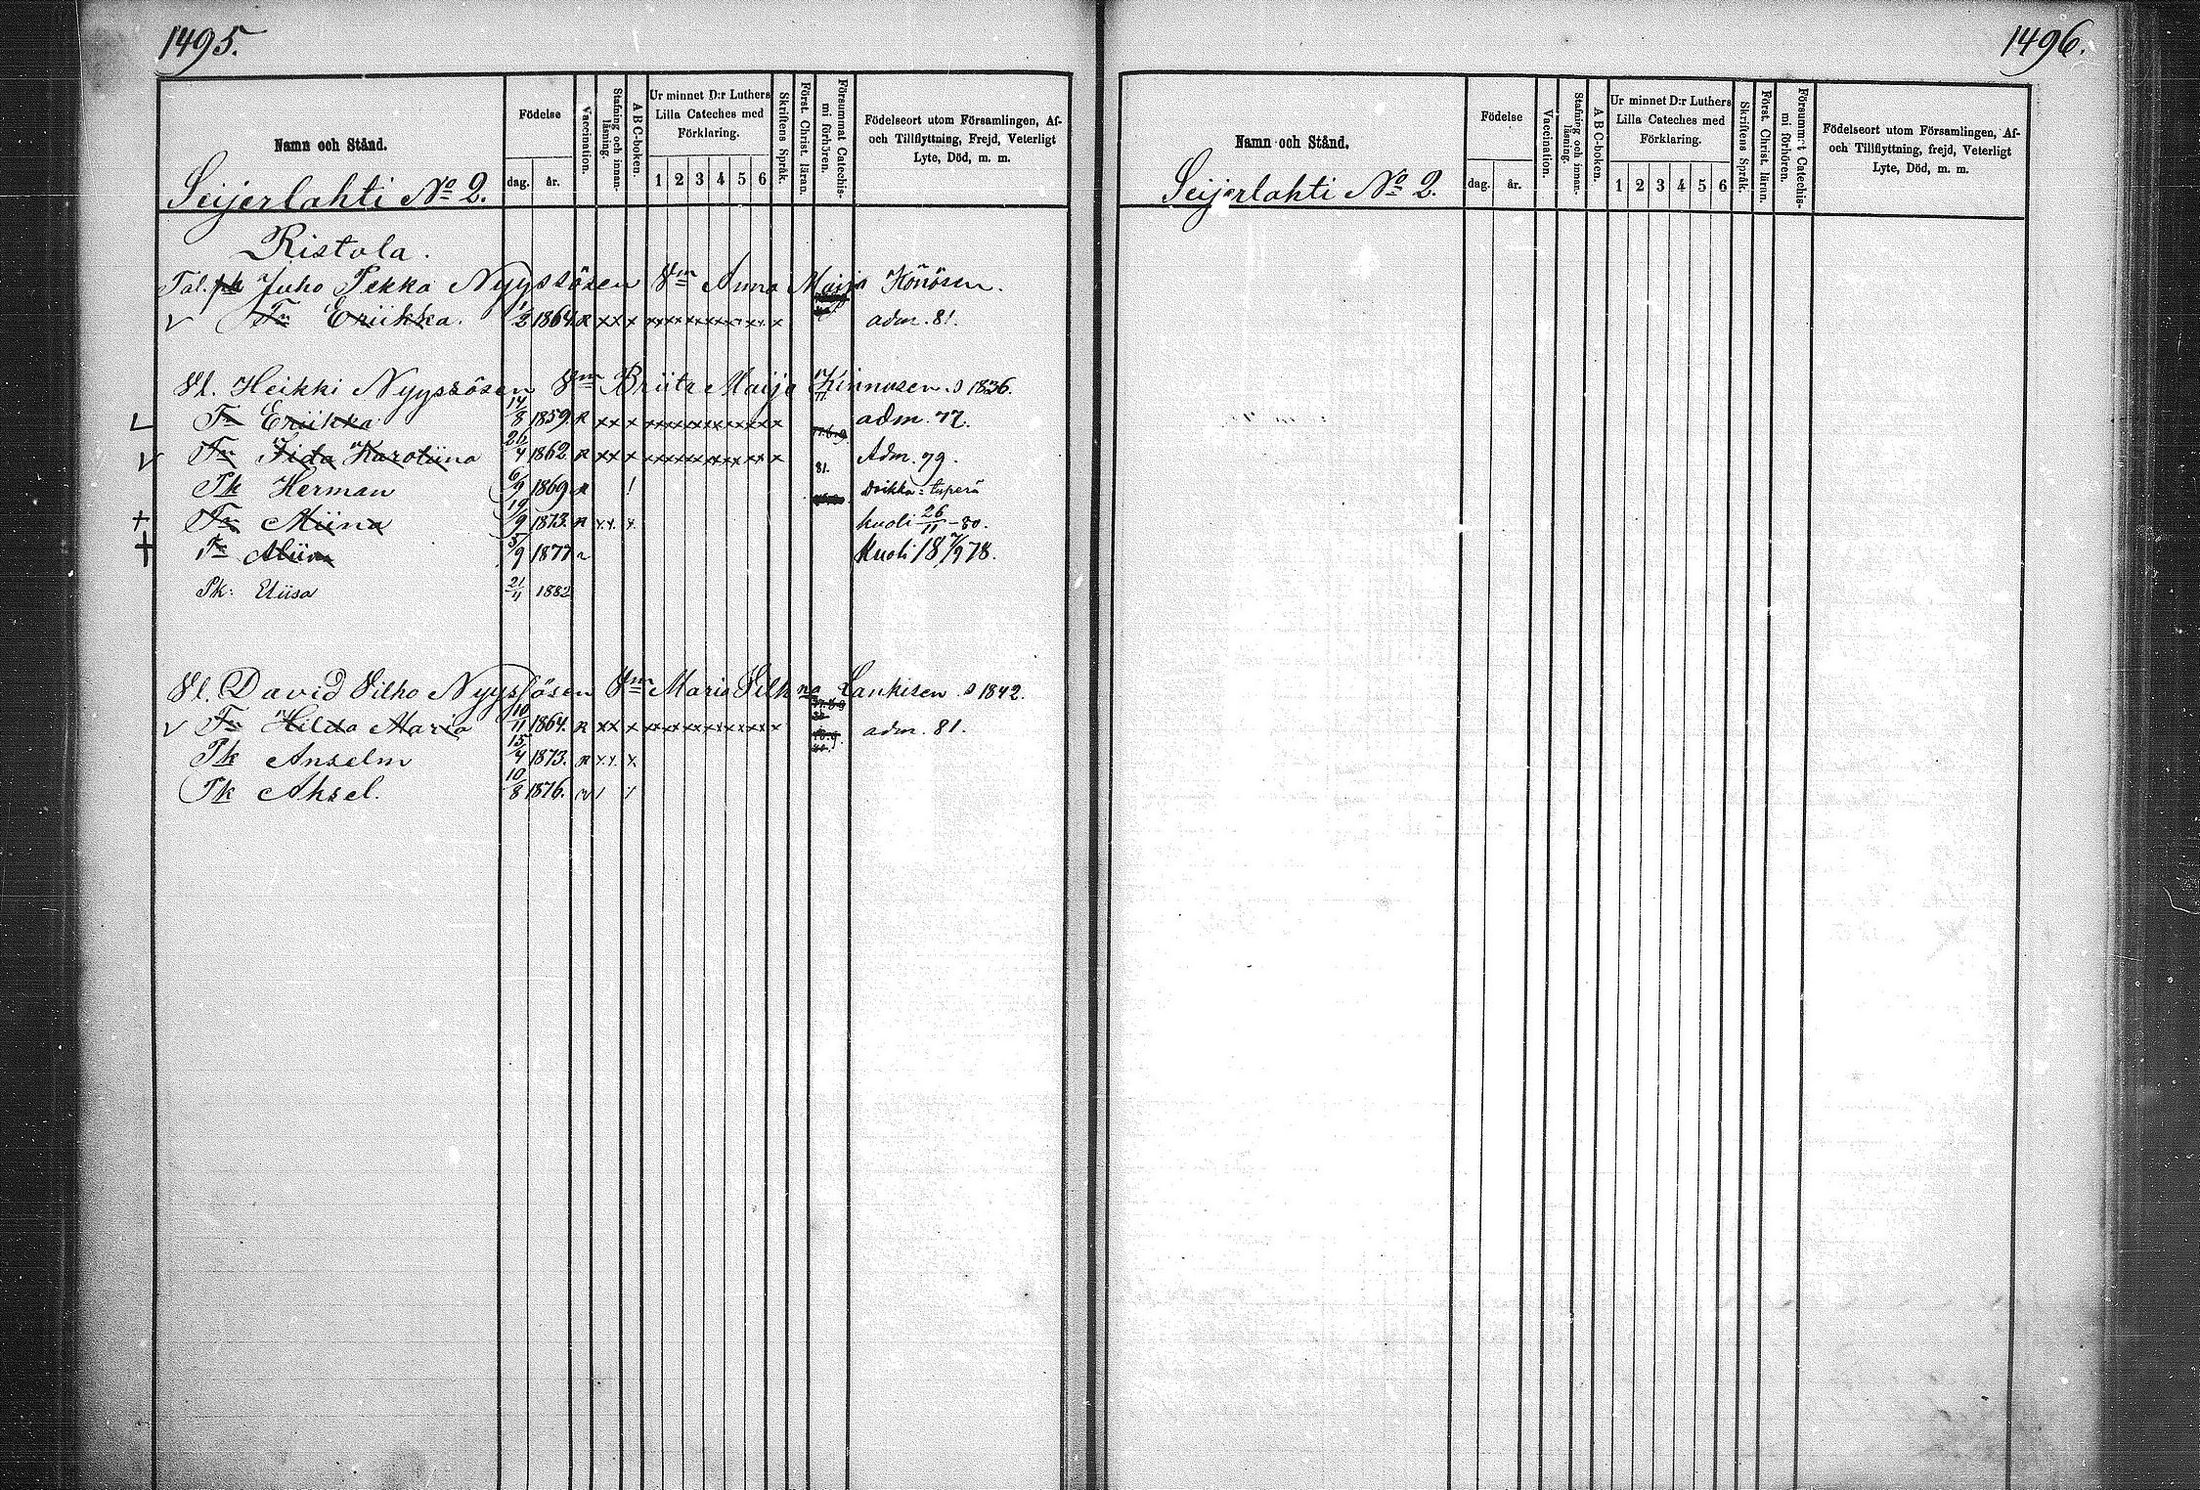 1495.
Namn och Stånd.
Födelse
dag.
år.
Vaccination.
Stafning och innan-läsning.
A B C-boken.
Ur minnet D:r Luthers
Lilla Cateches med
Förklaring.
1 2 3 4 5 6
Skriftens Språk.
Först. Christ. läran.
Försummat Catechis-mi förhören.
Födelseort utom Församlingen, Af-
och Tillflyttning, Frejd, Veterligt
Lyte, Död, m. m.
Seijerlahti No 2.
Ristola.
Tal. Juho Pekka Nyyssösen Vm Anna Maija Könösen.
Tr Eriikka. 1/2 1864. R xx x adm. 81.
Vl. Heikki Nyyssösen Vm Briita Maija Kinnusen. s 1836.
Tr Eriikka 14/8 1859. R xx x adm. 77.
Tr Iida Karoliina 26/4 1862 R xx x Adm. 79.
Pk Herman 6/9 1869 R 81.
Tr Miina 19/9 1873. R kuoli 26/11 - 80.
Tr 1877 Kuoli 18 78.
Pk: Eliisa 21/11 1882
Vl. David Vilho Nyyssösen Vm Maria Vilh na Laukisen s 1842.
Tr Hilda Maria 10/11 1864. R xx x adm. 81.
Pk Anselm 15/4 1873. R
Pk Aksel. 10/8 1876.
1496.
Namn och Stånd.
Födelse
dag.
år.
Vaccination.
Stafning och innan-läsning.
A B C-boken.
Ur minnet D:r Luthers
Lilla Cateches med
Förklaring.
1 2 3 4 5 6
Skriftens Språk.
Först. Christ. läran.
Försummat Catechis-mi förhören.
Födelseort utom Församlingen, Af-
och Tillflyttning, frejd, Veterligt
Lyte, Död, m. m.
Seijerlahti No 2.